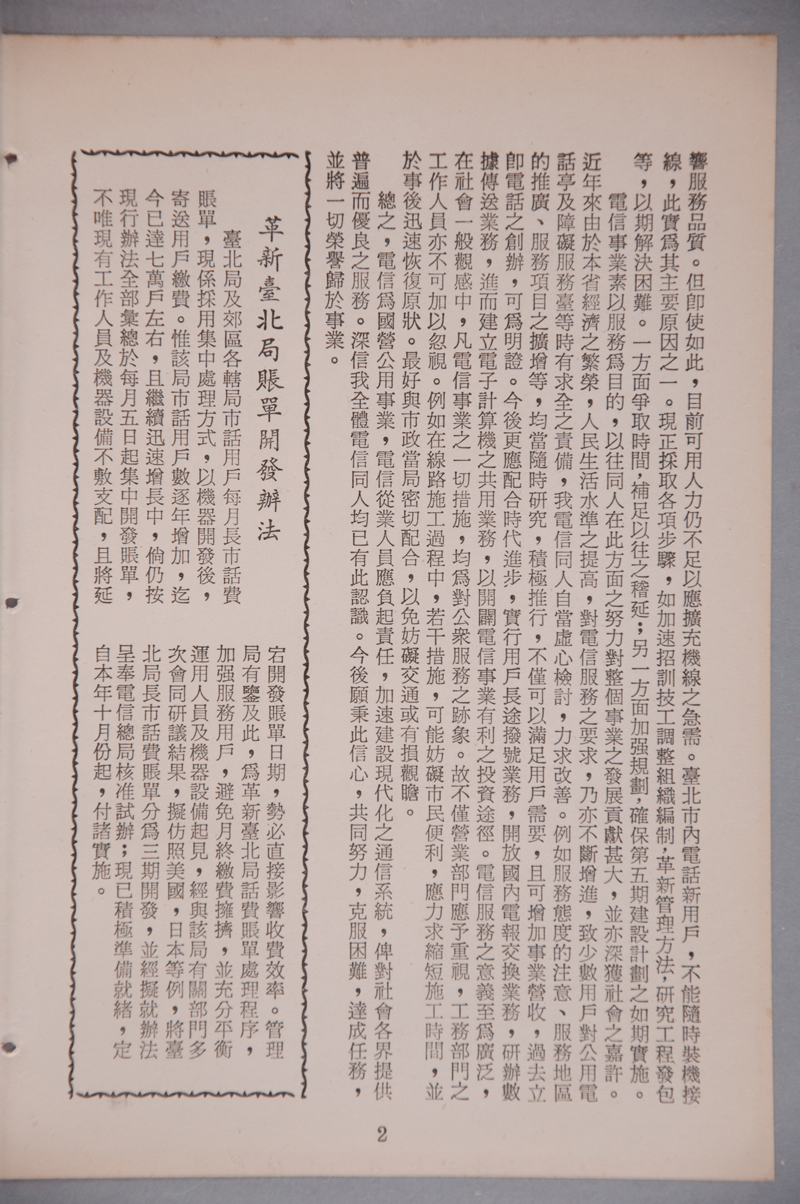 響服務品質。但卽使如此，目前可用人力仍不足以應擴充機線之急需。臺北市內電話新用戶，不能隨時裝機接
線，此實爲其主要原因之一。現正採取各項步驟，如加速招訓技工調整組織編制，革新管理方法，研究工程發包
等，以期解決困難。一方面爭取時間，補足以往之稽延；另一方面加强規劃，確保第五期建設計劃之如期實施。
電信事業素以服務爲目的，以往同人在此方面之努力對整個事業之發展貢獻甚大，並亦深獲社會之嘉許。
近年來由於本省經濟之繁榮，人民生活水準之提高，對電信服務之要求，乃亦不斷增進，致少數用戶對公用電
話亭及障礙服務臺等時有求全之責備，我電信同人自當虛心檢討，力求改善。例如服務態度的注意、服務地區
的推廣、服務項目之擴增等，均當隨時研究，積極推行，不僅可以滿足用戶需要，且可增加事業營收，過去立
卽電話之創辦，可爲明證。今後更應配合時代進步，實行用戶長途撥號業務，開放國內電報交換業務，研辦數
據傳送業務，進而建立電子計算機之共用業務，以開闢電信事業有利之投資途徑。電信服務之意義至爲廣泛，
在社會一般觀感中，凡電信事業之一切措施，均爲對公衆服務之跡象。故不僅營業部門應予重視，工務部門之
工作人員亦不可加以忽視。例如在線路施工過程中，若干措施，可能妨礙市民便利，應力求縮短施工時間，並
於事後迅速恢復原狀。最好與市政當局密切配合，以免妨礙交通或有損觀瞻。
總之，電信爲國營公用事業，電信從業人員應負起責任，加速建設現代化之通信系統，俾對社會各界提供
普遍而優良之服務。深信我全體電信同人均已有此認識。今後願秉此信心，共同努力，克服困難，達成任務，
並將一切榮譽歸於事業。
革新臺北局賬單開發辦法
臺北局及郊區各轄局市話用戶每月長市話費
賬單，現係採用集中處理方式，以機器開發後，
寄送用戶繳費。惟該局市話用戶數逐年增加，迄
今已達七萬戶左右，且繼續迅速增長中，倘仍按
現行辦法全部彙總於每月五日起集中開發賬單，
不唯現有工作人員及機器設備不敷支配，且將延
宕開發賬單日期，勢必直接影響收費效率。管理
局有鑒及此，爲革新臺北局話費賬單處理程序，
加强服務用戶，避免月終繳費擁擠，並充分平衡
運用人員及機器設備起見，經與該局有關部門多
次會同研議結果，擬仿照美國，日本等例，將臺
北局長市話費賬單分爲三期開發，並經擬就辦法
呈奉電信總局核准試辦；現已積極準備就緒，定
自本年十月份起，付諸實施。
2